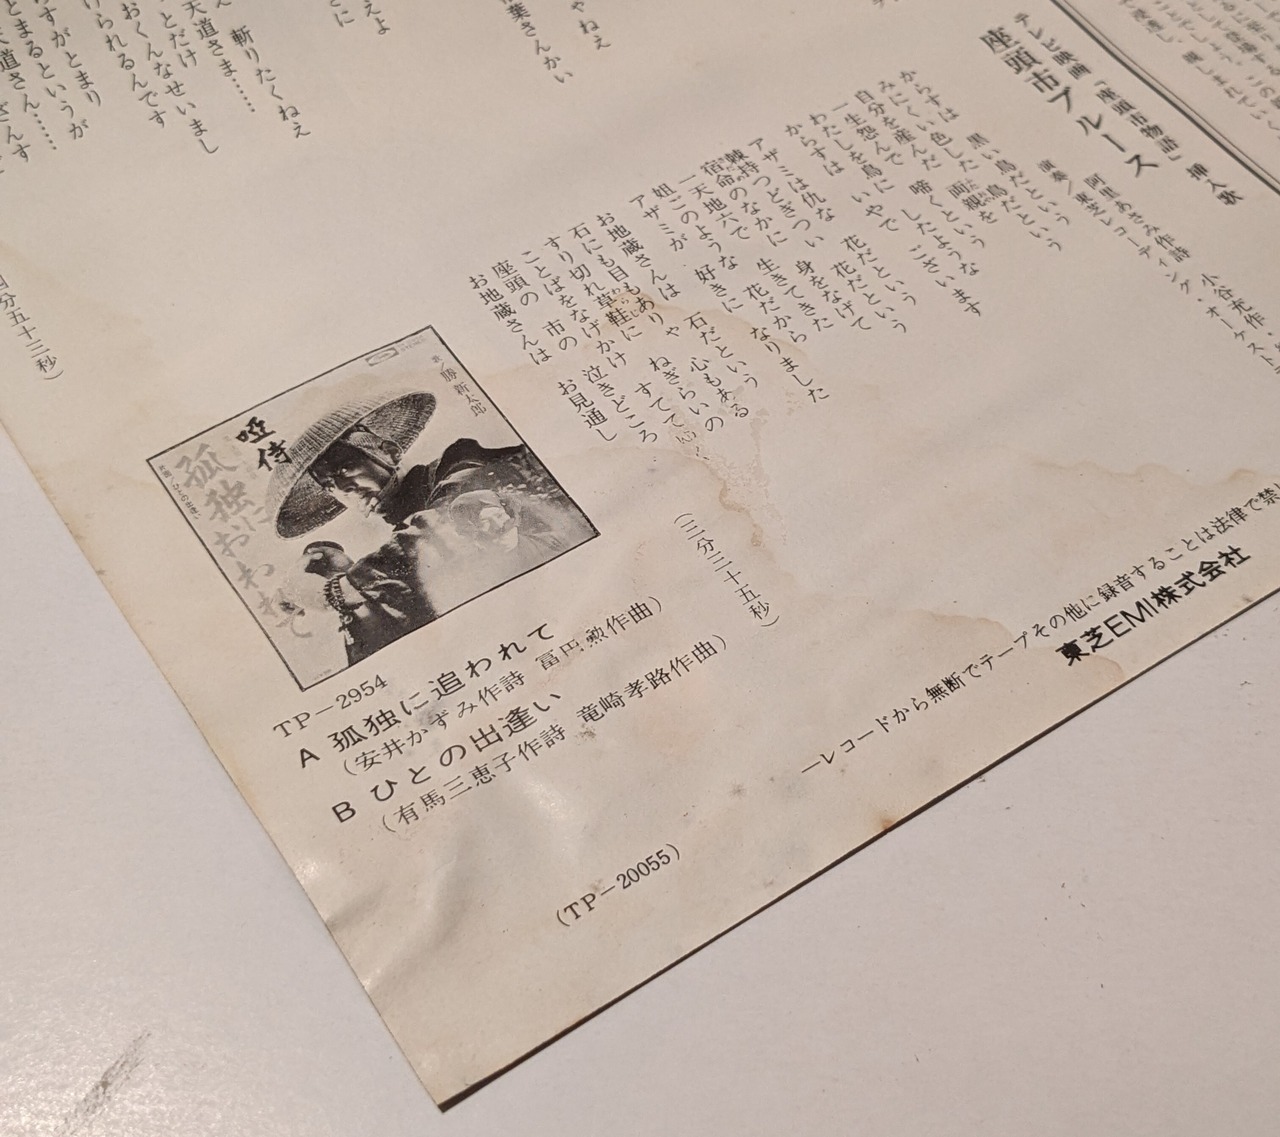 テレビ映画「座頭市物語」挿入歌
座頭市ブルース
阿里あさみ作詩 小谷充作・
演奏/東芝レコーディング・オーケスト
からすは 黒い鳥だという
みにくい色した 鳥だという
自分を産んだ 両親を
一生怨んで 啼くという
わたしを鳥に したような
からすは いやで ございます
アザミは仇な 花だという
棘持つどぎつい 花だという
宿命のなかに 身をなげて
一天地六で 生きてきた
姐このような 花だから
アザミが 好きに なりました
お地蔵さんは 石だという
石にも目もあり 心もある
すり切れ草鞋に ねぎらいの
ことばをなげかけ すてて
座頭の 市の 泣きどころ
お地蔵さんは お見通し
(三分三十五秒)
斬りたくねえ
天道さま……
おくんなせいまし
すがとまり
とまるというが
葉さんかい
ゃねえ
えよ
に
四分五十三秒)
歌/勝新太郎
唖侍
孤独におわれて
TP-2954
A 孤独に追われて
(安井かずみ作詩 冨田勲作曲)
B ひとの出逢い
(有馬三恵子作詩 竜崎孝路作曲)
(TP-20055)
ーレコードから無断でテープその他に録音することは法律で禁
東芝EMI株式会社